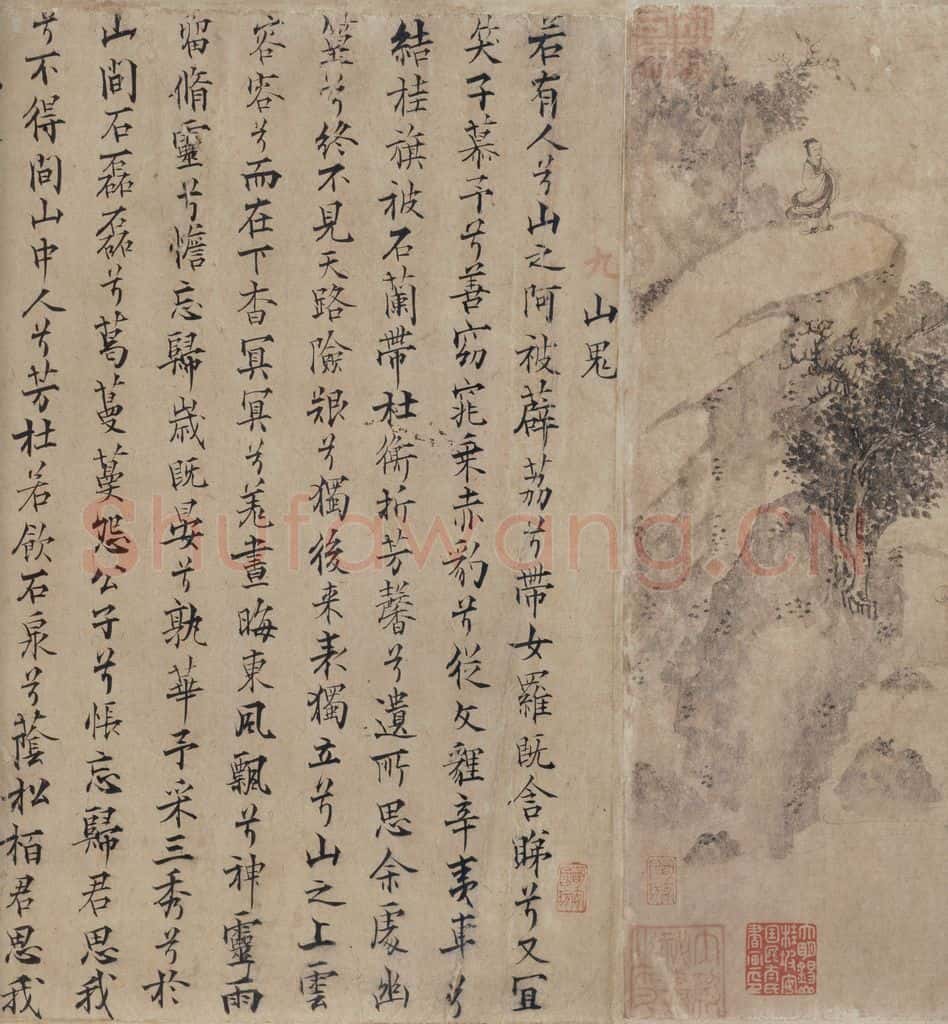 九
山鬼
若有人兮山之阿被薜荔兮帶女羅既含睇兮又宜
笑子慕予兮善窈窕乗赤豹兮從文貍辛夷車兮
結桂旗被石蘭帶杜衡折芳馨兮遺所思余處幽
篁兮終不見天路險艱兮獨後来表獨立兮山之上雲
容容兮而在下杳冥冥兮羌晝晦東風飄兮神靈雨
留脩靈兮憺忘歸歲既晏兮孰華予采三秀兮於
山間石磊磊兮葛蔓蔓怨公子兮悵忘歸君思我
兮不得間山中人兮芳杜若飲石泉兮蔭松栢君思我
大明錫山
桂坡安
國民太氏
書画印
Shufawang.CN